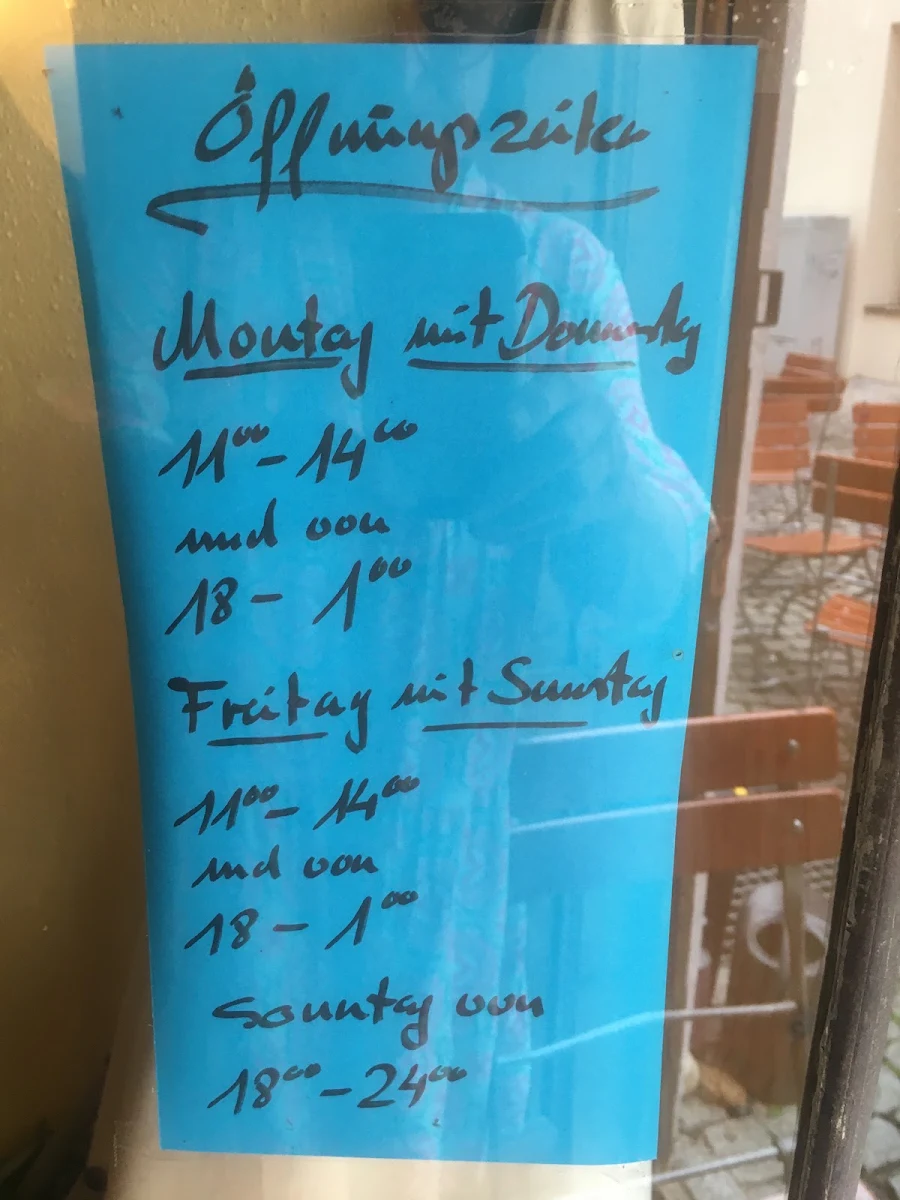 Öffnungszeiten
Montag mit Donnerstag
11⁰⁰ - 14⁰⁰
und von
18 - 1⁰⁰
Freitag mit Samstag
11⁰⁰ - 14⁰⁰
und von
18 - 1⁰⁰
Sonntag von
18⁰⁰ - 24⁰⁰